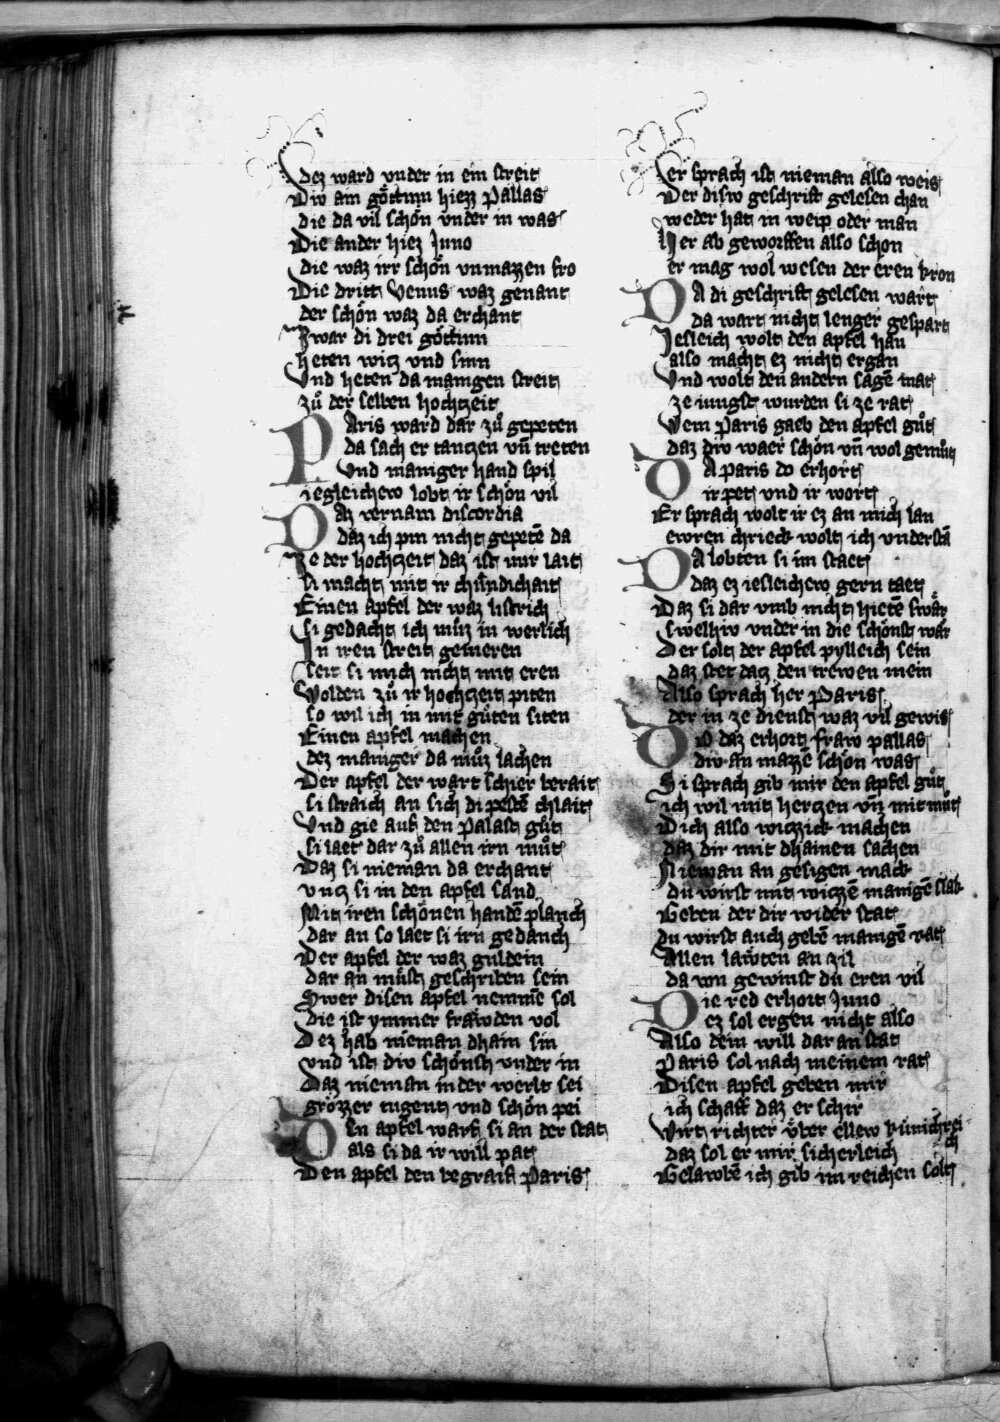 Dez ward vnder in ein streit
Div ain göttinn hiezz Pallas
die da vil schön vnder in was
Die ander hiez Juno
die waz irr schön vnmazzen fro
Die dritt Venus waz genant
der schön waz da erchant
Zwar di drei göttinn
heten witz vnd sinn
Vnd heten da manigen streit
zů der selben hochzeit
Paris ward dar zů gepeten
da sach er tantzen vn̄ treten
Vnd maniger hand spil
iegleichew lobt ir schön vil
Daz vernam discordia
daz ich pin nicht gepetē da
Ze der hochzeit daz ist mir lait
si macht mit ir chündichait
Einen apfel der waz listrich
si gedacht ich můz in werlich
In iren streit gemeren
seit si mich nicht mit eren
Wolden zů ir hochzeit piten
so wil ich in mit gůten siten
Einen apfel machen
dez maniger da můz lachen
Der apfel der wart schier berait
si straich an sich di pestē chlait
Vnd gie auf den Palast gůt
si laet dar zů allen irn můt
Daz si nieman da erchant
vntz si in den apfel sand
Mit iren schönen handē planch
dar an so laet si irn gedanch
Der apfel der waz guldein
dar an můst geschriben sein
Swer disen apfel nemmē sol
die ist ymmer frawden vol
Dez hab nieman dhain sin
vnd ist div schönst vnder in
Daz nieman inder werlt sei
grözzer tugent vnd schön pei
Den apfel warf si an der stat
als si da ir will pat
Den apfel den begraif Paris
Er sprach ist nieman also weis
Der disiv geschrift gelesen chan
weder hat in weip oder man
Her ab geworffen also schon
er mag wol wesen der eren kron
Da di geschrift gelesen wart
da wart nicht lenger gespart
Iesleich wolt den apfel han
also macht ez nicht ergan
Vnd wolt den andern sagē mat
ze iungst wurden si ze rat
Wem Paris gaeb den apfel gůt
daz div waer schön vn̄ wol gemůt
Da paris do erhort
ir pet vnd ir wort
Er sprach wolt ir ez an mich lan
ewren chrieck wolt ich vnderstā
Da lobten si im staet
daz ez iesleichew gern taet
Daz si dar vmb nicht hietē swär
swelhiv vnder in die schönst wär
Der solt der apfel pylleich sein
daz stet datz den trewen mein
Also sprach her Paris
der in ze dienst waz vil gewis
Do daz erhort fraw pallas
div an mazze schön was
Si sprach gib mir den apfel gůt
ich wil mit hertzen vn̄ mit můt
Dich also witzzick machen
daz dir mit dhainen sachen
Nieman an gesigen mack
du wirst mit witzzē manigē slak
Geben der dir wider stat
du wirst auch gebē manigē rat
Allen lawten an zil
da von gewinst du eren vil
Die red erhort Juno
ez sol ergen nicht also
Also dein will dar an stat
Paris sol nach meinem rat
Disen apfel geben mir
ich schaff daz er schir
Wirt richter über ellew künichrei-
ch
daz sol er mir sicherleich
Gelawbē ich gib im reichen solt